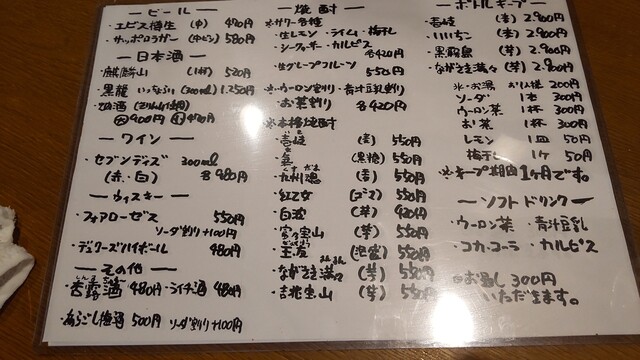 ービールー
・エビス樽生 (中) 490円
・サッポロラガー (中ビン) 580円
ー日本酒ー
・麒麟山 (1杯) 520円
・黒龍 いっちょらい (300ml) 1,250円
・地酒
大 900円 小 490円
ーワインー
・セブンデイズ 300ml
(赤・白) 各980円
ーウィスキーー
・フォアローゼス 550円
ソーダ割り+100円
・デュワーズハイボール 480円
ーその他ー
・杏露酒 480円・ライチ酒 480円
・あらごし梅酒 500円 ソーダ割り+100円
ー焼酎ー
※サワー各種
・生レモン・ライム・梅干し
・シークヮーサー・カルピス
各420円
・生グレープフルーツ
550円
※・ウーロン割り・青汁豆乳割り
・お茶割り 各420円
※本格焼酎
・壱岐 (麦) 550円
(黒糖) 550円
・九州魂 (麦) 550円
・紅乙女 (ゴマ) 550円
・白波 (芋) 420円
・富乃宝山 (芋) 550円
(泡盛) 550円
・ながさき満々 (芋) 550円
・吉兆宝山 (芋) 550円
ーボトルキープー
・壱岐 (麦) 2,900円
・いいちこ (麦) 2,900円
・黒霧島 (芋) 2,900円
・ながさき満々 (芋) 2,900円
氷・お湯 お1人様 200円
ソーダ 1本 300円
ウーロン茶 1杯 300円
お茶 1杯 300円
レモン 1皿 50円
梅干し 1ケ 50円
※キープ期間1ヶ月です。
ーソフトドリンクー
・ウーロン茶・青汁豆乳
・コカ・コーラ・カルピス
お通し300円
いただきます。